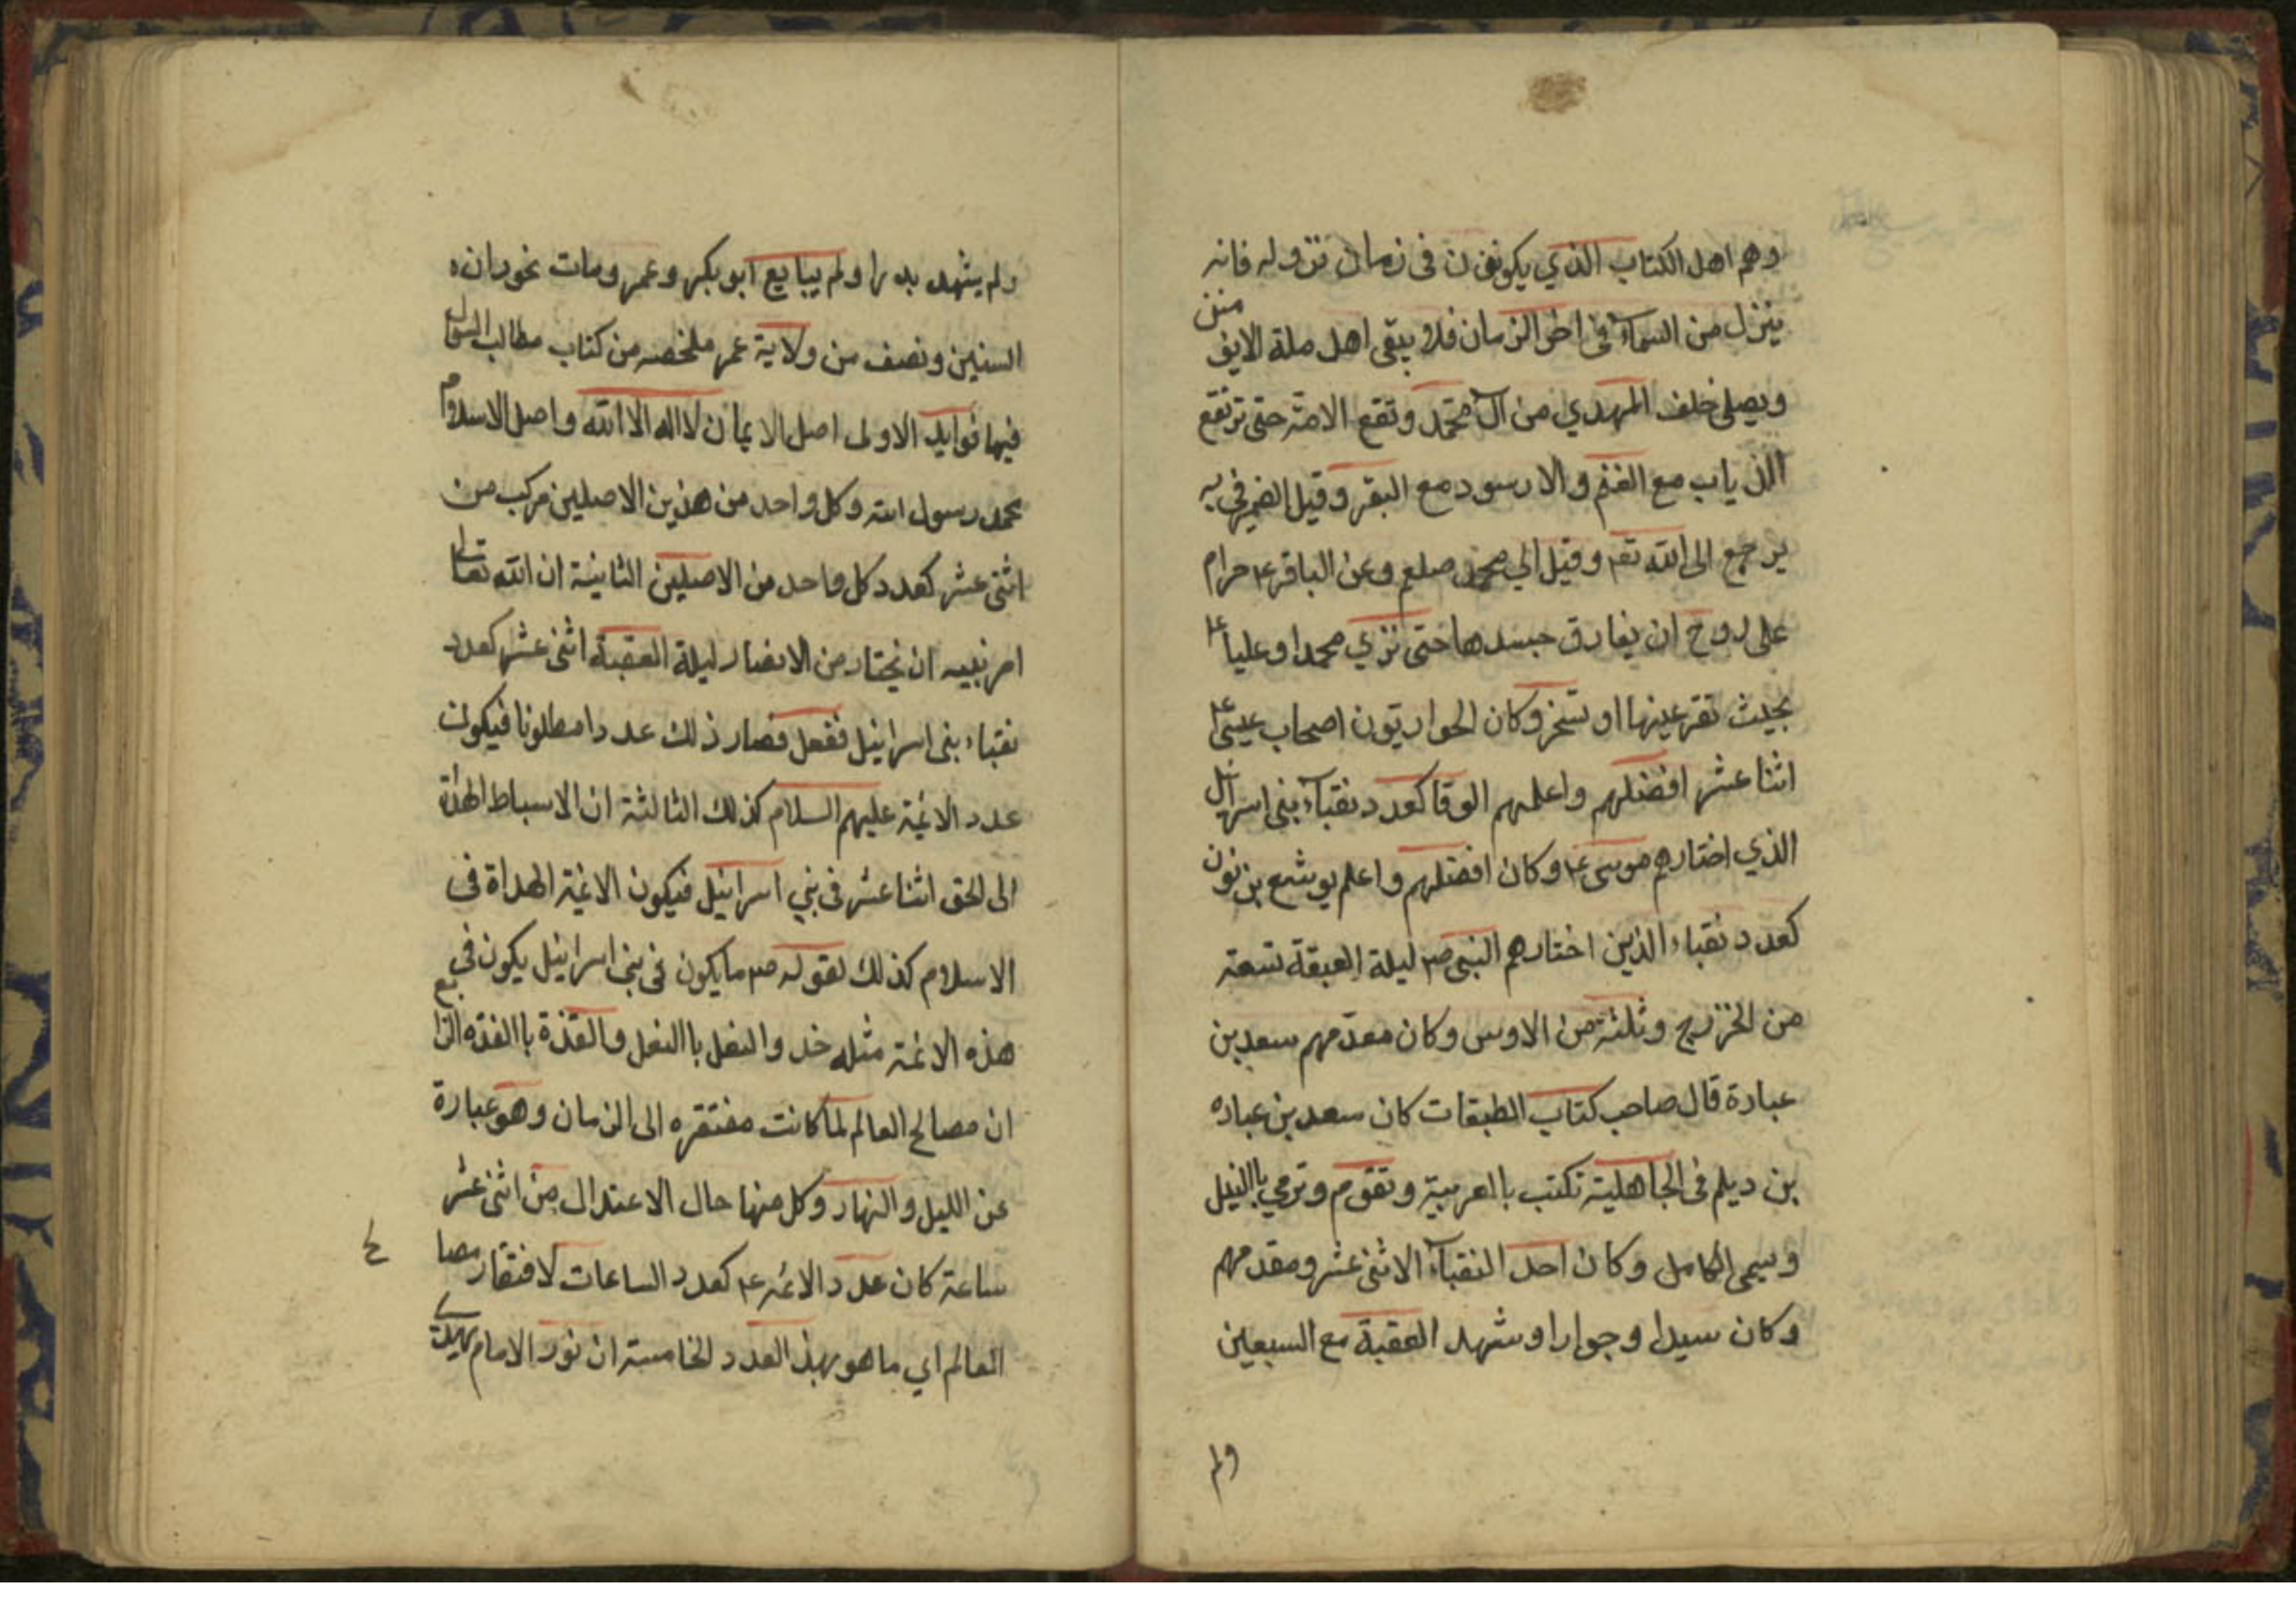 وهم اهل الكتاب الذي يكونون فى زمان نزوله فانه
ينزل من السماء فى اخر الزمان فلا يبقى اهل ملة الا يؤمنن
ويصلى خلف المهدي من ال محمد وتقع الامنة حتى ترتقع
الذياب مع الغنم والارسود مع البقر وقيل الضمير في به
يرجع الى الله تع وقيل الي محمد صلعم وعن الباقر ع حرام
على روح ان يفارق جسدها حتى تري محمدا وعليا ع
بحيث تقر عينها او تسخن وكان الحواريون اصحاب عيسى ع
اثنا عشر افضلهم واعلمهم الوقا كعدد نقباء بنى اسرائيل
الذي اختارهم موسى ع وكان افضلهم واعلم يوشع بن نون
كعدد نقباء الذين اختارهم النبى ص ليلة العبقة تسعة
من الخزرج وثلثة من الاوس وكان مقدمهم سعد بن
عبادة قال صاحب كتاب الطبقات كان سعد بن عباده
بن ديلم فى الجاهلية تكتب باالعربية وتقوم وترمي باالنبل
ويسمى الكامل وكان احد النقباء الاثنى عشر ومقدمهم
وكان سيدا وجوادا وشهد العقبة مع السبعين
ولم
ولم يشهد بدرا ولم يبايع ابو بكر وعمر ومات بحوران
السنين ونصف من ولاية عمر ملخصه من كتاب مطالب السول
فيها فوايد الاولى اصل الايمان لا اله الا الله واصل الاسلام
محمد رسول الله وكل واحد من هذين الاصلين مركب من
اثنى عشر كعدد كل واحد من الاصلين الثانية ان الله تعالى
امر نبيه ان يختار من الانصار ليلة العقبة اثنى عشر كعدد
نقباء بنى اسرائيل ففعل فصار ذلك عددا مطلوبا فيكون
عدد الائمة عليهم السلام كذلك الثالثة ان الاسباط الهداة
الى الحق اثنا عشر فى بني اسرائيل فيكون الائمة الهداة فى
الاسلام كذلك لقوله ص ما يكون فى بنى اسرائيل يكون فى
هذه الائمة مثله خد والنعل باالنعل والقذة باالقذه الرابع
ان مصالح العالم لما كانت مفتقره الى الزمان وهو عبارة
عن الليل والنهار وكل منها حال الاعتدال من اثنى عشر
ساعة كان عدد الائمه ع كعدد الساعات لافتقار مصالح
العالم اي ما هو بهذ العدد الخامسة ان نور الامام يهدي